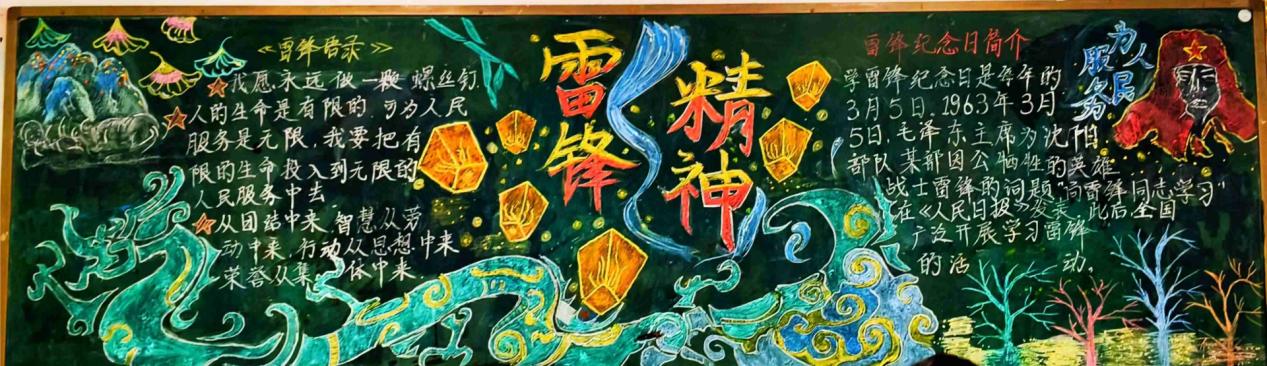 《雷锋语录》
我愿永远做一颗螺丝钉.
人的生命是有限的.可为人民
服务是无限,我要把有
限的生命投入到无限的
人民服务中去
从团结中来,智慧从劳
动中来,行动从思想中来
荣誉从集体中来.
雷锋
精神
雷锋纪念日简介
学雷锋纪念日是每年的
3月5日,1963年3月
5日,毛泽东主席为沈阳
部队某部因公牺牲的英雄
战士雷锋的词题"向雷锋同志学习"
在《人民日报》发表,此后全国
广泛开展学习雷锋
的活动。
为人民
服务